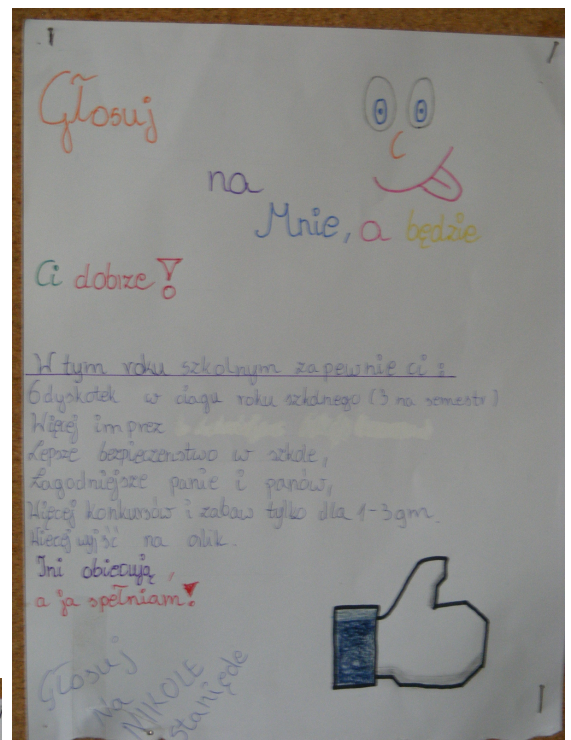 Głosuj
na
Mnie, a będzie
Ci dobrze!
W tym roku szkolnym zapewnie ci :
6 dyskotek w ciągu roku szkolnego (3 na semestr)
Więcej imprez
Lepsze bezpieczenstwo w szkole,
Łagodniejsze panie i panów,
Więcej konkursów i zabaw tylko dla 1-3 gm.
Wiecej wyjść na orlik.
Ini obiecują,
a ja spełniam!
Głosuj
Na
NIKOLE